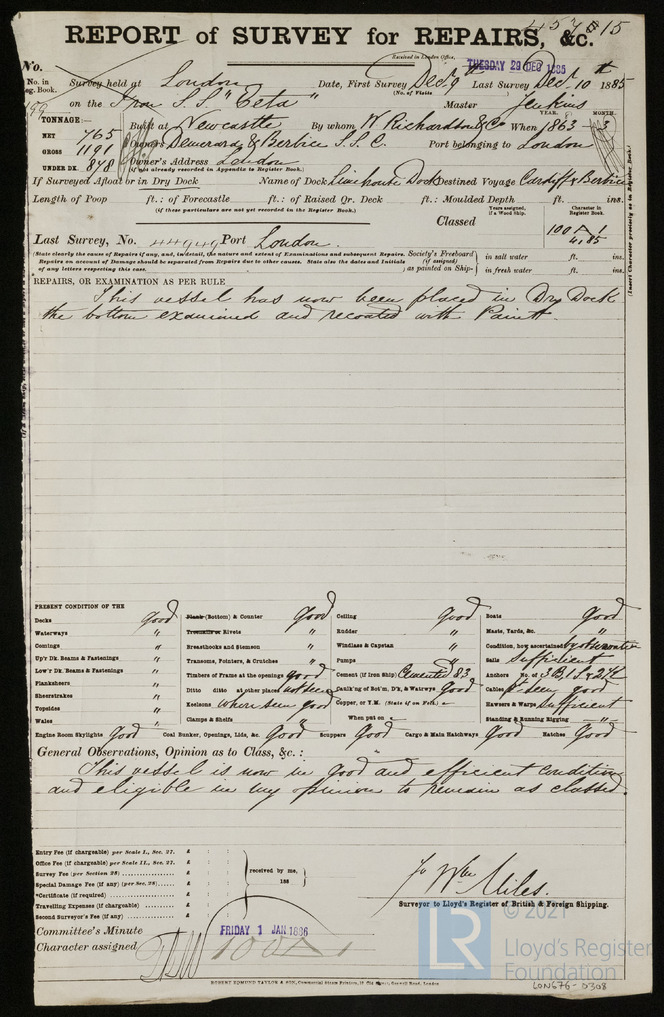 REPORT of SURVEY for REPAIRS, &c.
Received in London Office, TUESDAY 29 DEC 1885
No.
No. in Reg. Book. Survey held at London Date, First Survey Dec 9th Last Survey Dec 10th 1885
(No. of Visits
on the Iron S.S "Zeta" Master Jenkins
TONNAGE: Built at Newcastle By whom W Richardson & Co When 1863 - 3
YEAR. MONTH.
NET 765
GROSS 1191
UNDER DK. 878
Owners Demerara & Berbice S.S.C. Port belonging to London
Owner's Address London
(if not already recorded in Appendix to Register Book.)
If Surveyed Afloat or in Dry Dock Name of Dock Limehouse Dock Destined Voyage Cardiff & Berbice
Length of Poop ft.: of Forecastle ft.: of Raised Qr. Deck ft.: Moulded Depth ft. ins.
(if these particulars are not yet recorded in the Register Book.)
Years assigned, if a Wood Ship. Character in Register Book.
Classed 100 A 1
4,85
Last Survey, No. 44949 Port London.
(State clearly the cause of Repairs if any, and, in detail, the nature and extent of Examinations and subsequent Repairs.
Repairs on account of Damage should be separated from Repairs due to other causes. State also the dates and Initials
of any letters respecting this case.
Society's Freeboard (if assigned) as painted on Ship- in salt water ft. ins.
in fresh water ft. ins.
REPAIRS, OR EXAMINATION AS PER RULE
This vessel has now been placed in Dry Dock
the bottom examined and recoated with Paint.
PRESENT CONDITION OF THE
Decks good
Waterways "
Comings "
Up'r Dk. Beams & Fastenings "
Low'r Dk. Beams & Fastenings "
Planksheers "
Sheerstrakes "
Topsides "
Wales "
Plank (Bottom) & Counter good
Treenails or Rivets "
Breasthooks and Stemson "
Transoms, Pointers, & Crutches "
Timbers of Frame at the openings good
Ditto ditto at other places not seen
Keelsons where seen good
Clamps & Shelfs "
Ceiling good
Rudder "
Windlass & Capstan "
Pumps "
Cement (if Iron Ship) Cemented 83
Caulk'ng of Bot'm, D'k, & Watrwys Good
Copper, or Y.M. (State if on Felt.)
When put on
Boats good
Masts, Yards, &c. "
Condition, how ascertained
Sails Sufficient
Anchors No. of 3 B, 1 S, & 2 K
Cables pt seen good
Hawsers & Warps sufficient
Standing & Running Rigging "
Engine Room Skylights Good Coal Bunker, Openings, Lids, &c. Good Scuppers Good Cargo & Main Hatchways Good Hatches Good
General Observations, Opinion as to Class, &c. :
This vessel is now in good and efficient condition
and eligible in my opinion to remain as classed.
Entry Fee (if chargeable) per Scale I., Sec. 27. £ : :
Office Fee (if chargeable) per Scale II., Sec. 27. £ : :
Survey Fee (per Section 28) £ : :
Special Damage Fee (if any) (per Sec. 28) £ : :
*Certificate (if required) £ : :
Travelling Expenses (if chargeable) £ : :
Second Surveyor's Fee (if any) £ : :
received by me,
188
Wm Miles.
Surveyor to Lloyd's Register of British & Foreign Shipping.
Committee's Minute FRIDAY 1 JAN 1886
Character assigned 100 A 1
ROBERT EDMUND TAYLOR & SON,
© 2021
LR
Lloyd's Register
Foundation
LON676-0308